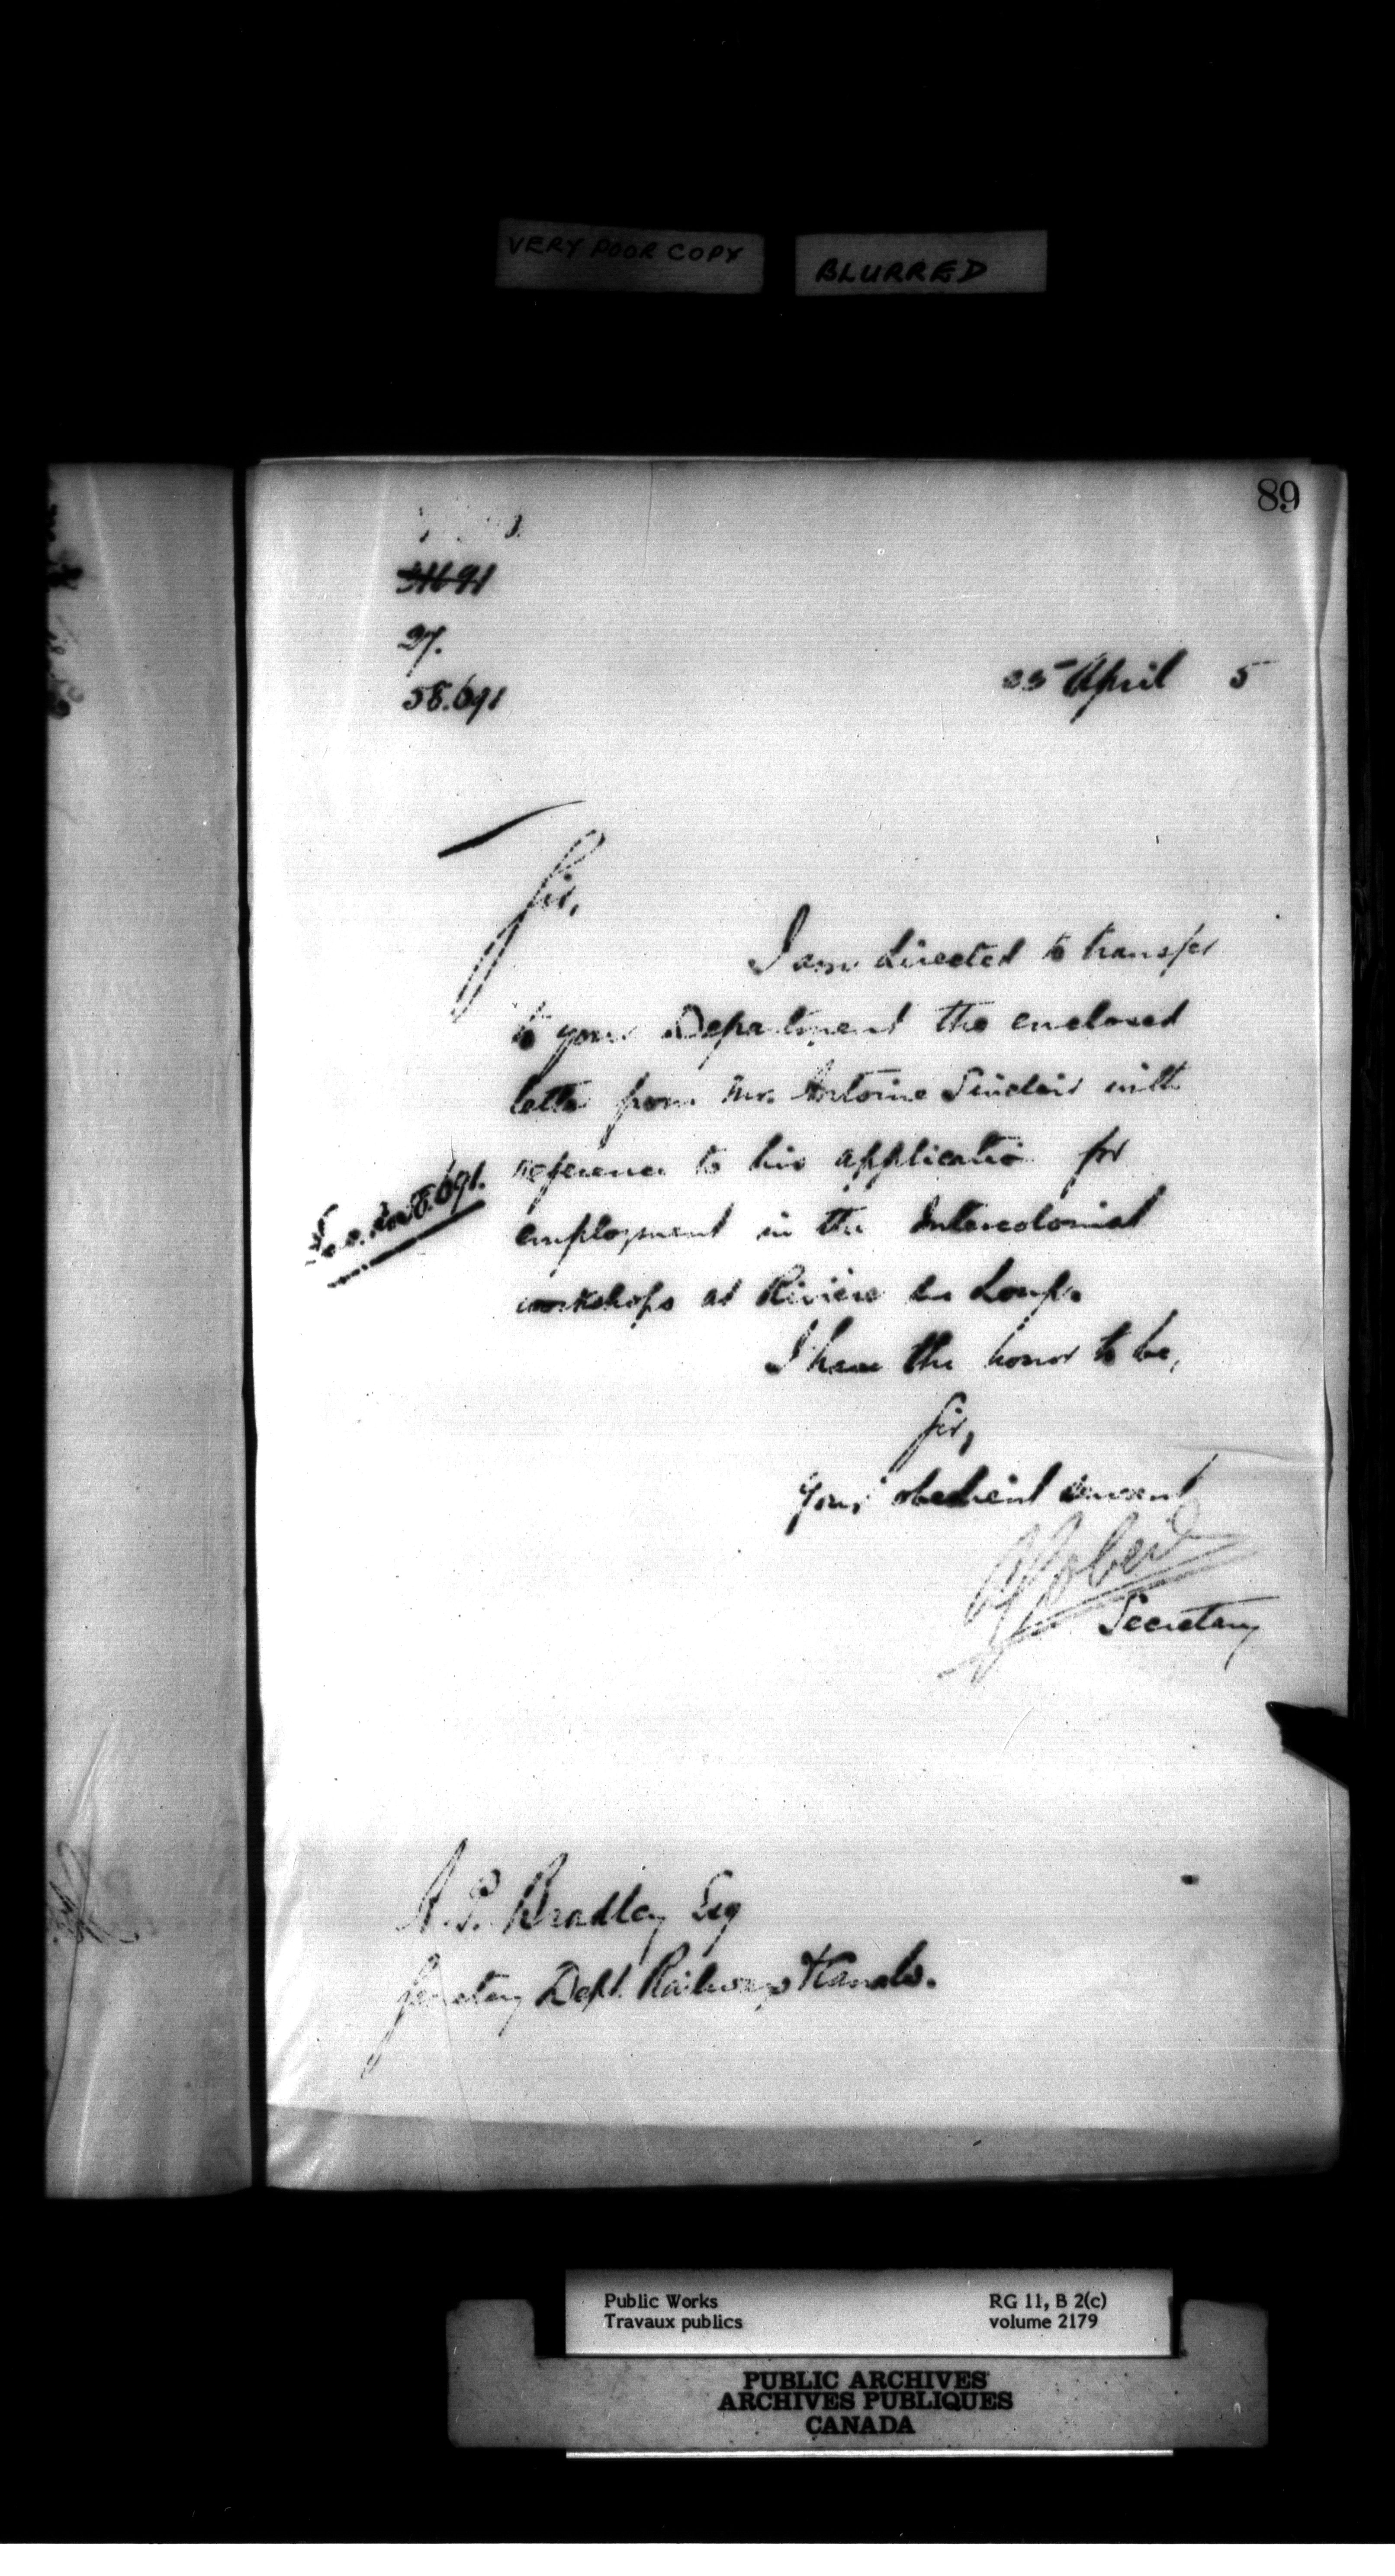 VERY POOR COPY
BLURRED
89
27.
58.691
25 April 5
Sir,
I am directed to transfer
to your Department the enclosed
letter from Mr. Antoine Sinclair with
reference to his applicatio for
See 58.691.
employment in the Intercolonial
workshops at Rivière du Loup.
I have the honor to be,
Sir,
Your obedient servant
Secretary
A. P. Bradley Esq
Secretary Dept. Railways & Canals.
Public Works
Travaux publics
RG 11, B 2(c)
volume 2179
PUBLIC ARCHIVES
ARCHIVES PUBLIQUES
CANADA